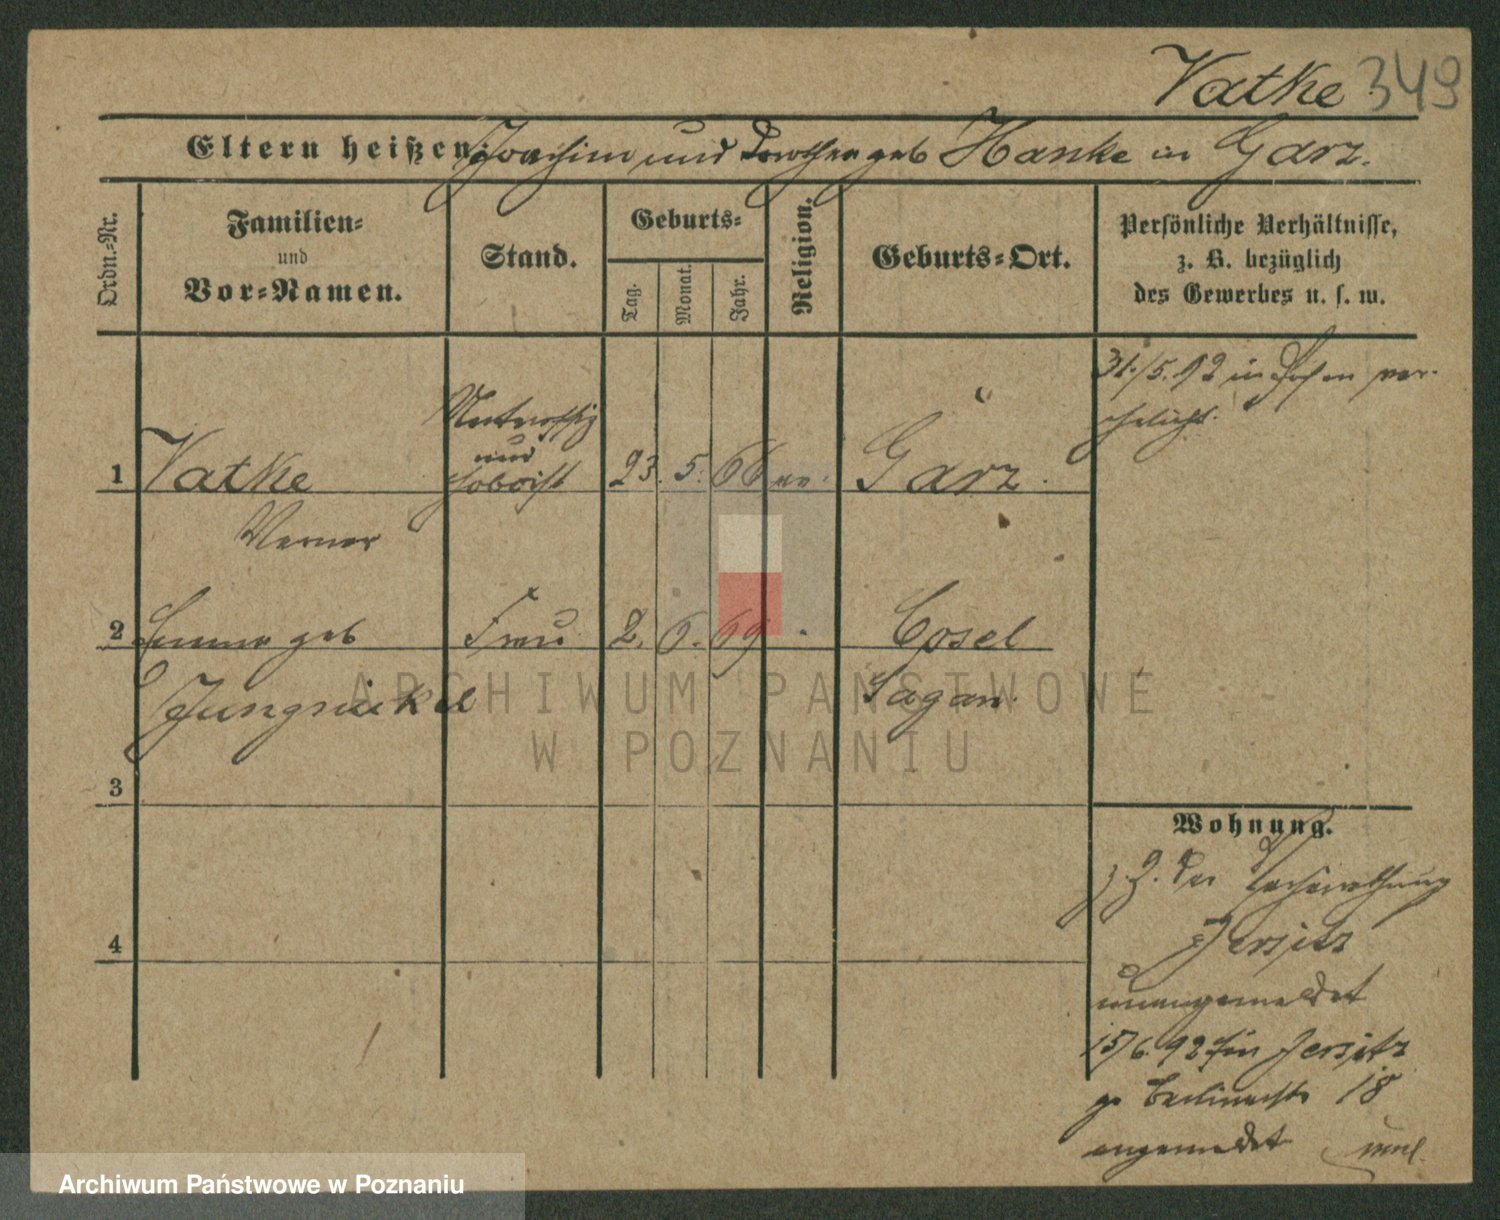 Vatke 349
Eltern heißen: Joachim und Dorothea geb Hanke in Garz.
Ordn.-Nr.
Familien-
und
Vor-Namen.
Stand.
Geburts-
Tag.
Monat.
Jahr.
Religion.
Geburts-Ort.
Persönliche Verhältnisse,
z. B. bezüglich
des Gewerbes u. s. w.
31./5.92 in Posen ver-
ehelicht.
Unteroffiz
und
Hoboist
1 Vatke 23. 5. 66 ev. Garz.
Werner
2 Emma geb Frau 2. 6. 69 Cosel
Jungnickel Sagan.
3
4
Wohnung.
z. Z. der
Jersitz
unangemeldet
15/6.92 für Jersitz
18
angemeldet
ARCHIWUM PAŃSTWOWE
W POZNANIU
Archiwum Państwowe w Poznaniu